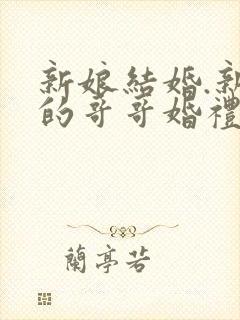 新娘結婚.新
的哥哥婚禮
蘭亭若